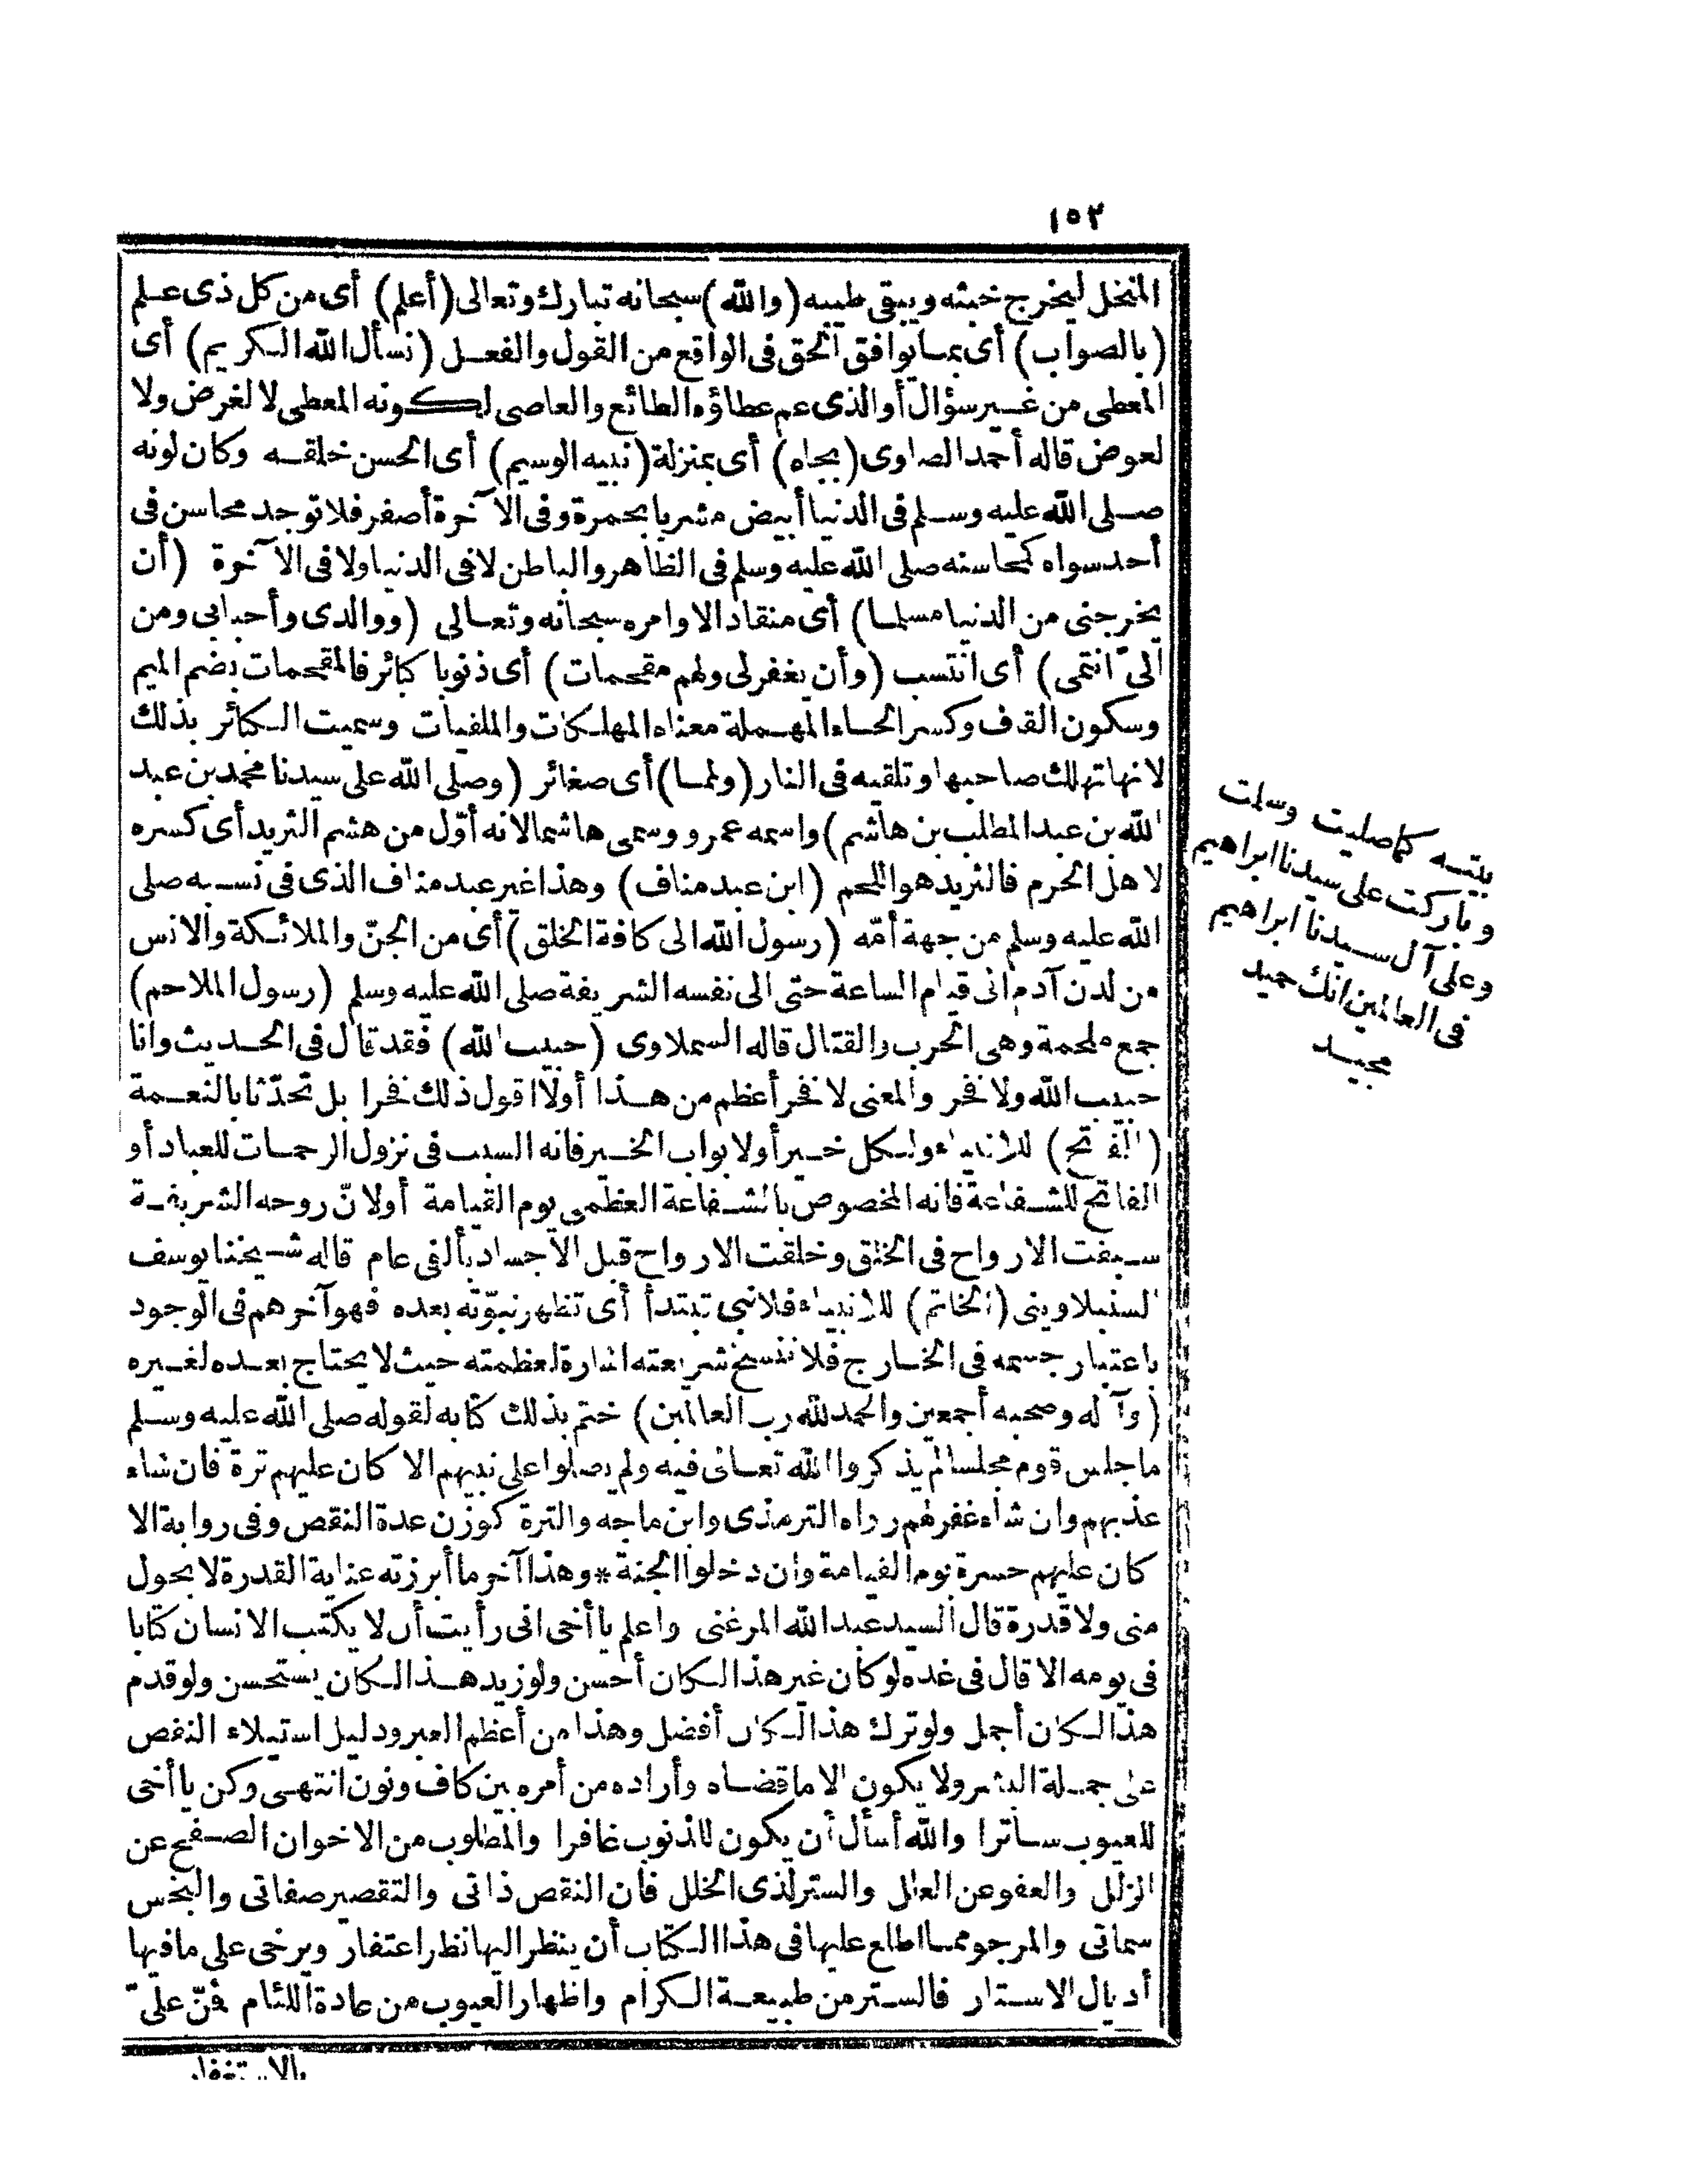 ١٥٢
المنخل ليخرج خبثه ويبقى طيبه (والله) سبحانه تبارك وتعالى (أعلم) أى من كل ذى علم
(بالصواب) أى بما يوافق الحق فى الواقع من القول والفعل (نسأل الله الكريم) أى
المعطى من غير سؤال أو الذى عم عطاؤه الطائع والعاصى لكونه المعطى لا لغرض ولا
لعوض قاله أحمد الصاوى (بجاه) أى بمنزلة (نبيه الوسيم) أى الحسن خلقه وكان لونه
صلى الله عليه وسلم فى الدنيا أبيض مشربا بحمرة وفى الآخرة أصفر فلا توجد محاسن فى
أحد سواه كمحاسنه صلى الله عليه وسلم فى الظاهر والباطن لا فى الدنيا ولا فى الآخرة (أن
يخرجنى من الدنيا مسلما) أى منقاد الاوامره سبحانه وتعالى (ووالدى وأحبابى ومن
الىّ انتمى) أى انتسب (وأن يغفر لى ولهم مقحمات) أى ذنوبا كبائر فالمقحمات بضم الميم
وسكون القاف وكسر الحاء المهملة معناه المهلكات والملقيات وسميت الكبائر بذلك
لانها تهلك صاحبها وتلقيه فى النار (ولمما) أى صغائر (وصلى الله على سيدنا محمد بن عبد
الله بن عبد المطلب بن هاشم) واسمه عمرو وسمى هاشما لانه أوّل من هشم الثريد أى كسره
لاهل الحرم فالثريد هو اللحم (ابن عبد مناف) وهذا غير عبد مناف الذى فى نسبه صلى
الله عليه وسلم من جهة أمّه (رسول الله الى كافة الخلق) أى من الجنّ والملائكة والانس
من لدن آدم الى قيام الساعة حتى الى نفسه الشريفة صلى الله عليه وسلم (رسول الملاحم)
جمع ملحمة وهى الحرب والقتال قاله السملاوى (حبيب الله) فقد قال فى الحديث وانا
حبيب الله ولا فخر والمعنى لا فخر أعظم من هذا أولا اقول ذلك فخرا بل تحدّثا بالنعمة
(الفاتح) للانبياء ولكل خير أو لابواب الخير فانه السبب فى نزول الرحمات للعباد أو
الفاتح للشفاعة فانه المخصوص بالشفاعة العظمى يوم القيامة أو لانّ روحه الشريفة
سبقت الارواح فى الخلق وخلقت الارواح قبل الاجساد بألفى عام قاله شيخنا يوسف
السنبلاوينى (الخاتم) للانبياء فلا نبى تبتدأ أى تظهر نبوّته بعده فهو آخرهم فى الوجود
باعتبار جسمه فى الخارج فلا تنسخ شريعته اشارة لعظمته حيث لا يحتاج بعده لغيره
(وآله وصحبه أجمعين والحمد لله رب العالمين) ختم بذلك كتابه لقوله صلى الله عليه وسلم
ما جلس قوم مجلسا لم يذكروا الله تعالى فيه ولم يصلوا على نبيهم الا كان عليهم ترة فان شاء
عذبهم وان شاء غفر لهم رواه الترمذى وابن ماجه والترة كوزن عدة النقص وفى رواية الا
كان عليهم حسرة يوم القيامة وان دخلوا الجنة * وهذا آخر ما أبرزته عناية القدرة لا بحول
منى ولا قدرة قال السيد عبد الله المرغنى واعلم يا أخى انى رأيت أن لا يكتب الانسان كتابا
فى يومه الا قال فى غده لو كان غير هذا لكان أحسن ولو زيد هذا لكان يستحسن ولو قدم
هذا لكان أجمل ولو ترك هذا لكان أفضل وهذا من أعظم العبر ودليل استيلاء النقص
على جملة البشر ولا يكون الا ما قضاه وأراده من أمره بين كاف ونون انتهى وكن يا أخى
للعيوب ساترا والله أسأل أن يكون للذنوب غافرا والمطلوب من الاخوان الصفح عن
الزلل والعفو عن العلل والستر لذى الخلل فان النقص ذاتى والتقصير صفاتى والبخس
سماتى والمرجو ممن اطلع عليها فى هذا الكتاب أن ينظر اليها نظر اغتفار ويرخى على ما فيها
أذيال الاستار فالستر من طبيعة الكرام واظهار العيوب من عادة اللئام فمنّ علىّ
بالاستغفار
بيته كما صليت وسلمت
وباركت على سيدنا ابراهيم
وعلى آل سيدنا ابراهيم
فى العالمين انك حميد
مجيد